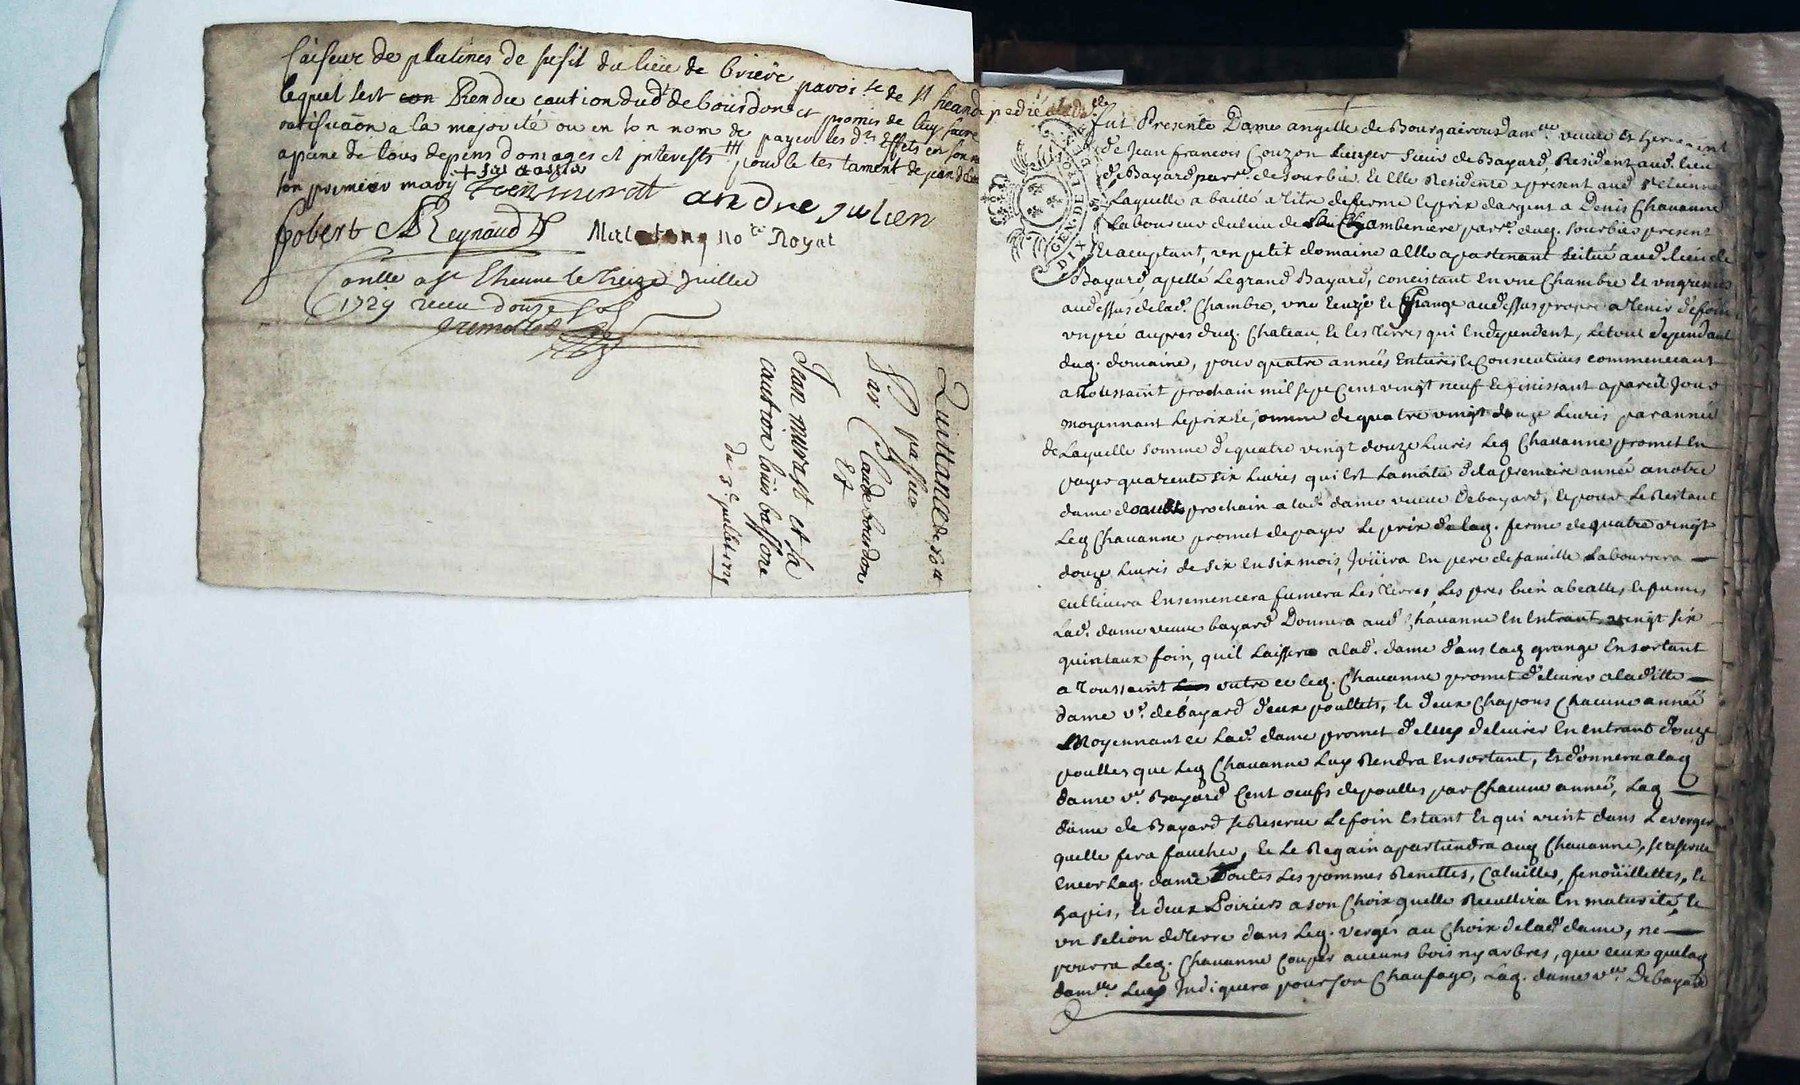 faiseur de platines de fusil du lieu de brieve parois.se de st heand
lequel sest con Rendu caution dud.t de bourdon et promis de luy faire
ratifica͠on a la majorité ou en son nom de payer les d.ts Effets en son
apeine de tous depens domages et interests pour le testament de
son premier mary + Jay cassé
Jean murat andre julien
Robert Reynaud not.e Royal
Conllé a st Etienne le treize Juillet
1729 receu douze sols
Quittance de
passée
Par Claude bourdon
Et
Jean murast et sa
caution louis bassone
du 3.e juillet 1729
GEN. DE LION
DIX
fut Presente Dame angelle de Bourgairoux dam.lle veuve et heritiere
de Jean francois Couzon Sieur de Bayard, Resident aud. lieu
de Bayard parr.e de Sourbie Et elle Residente apresent aud St etienne
Laquelle a baillé a titre de ferme le prix dargent a Denis Chavanne
Laboureur du lieu de Chambeniere parr.e dud. Sourbier present
Et aceptant, un petit domaine a elle apartenant Scitué aud. lieu de
Bayard apellé Le grand Bayard, concistant en une Chambre Et un grenier
audessus de lad. Chambre, une Et Grange audessus propre a tenir de foin
un pré aupres dud. Chateau Et les terres qui En dependent, Le tout dependant
dud. domaine, pour quatre années Entieres Et Consecutives commencant
a toussaint prochain mil sept Cent vingt neuf Et finissant a pareil jour
moyennant Le prix Et somme de quatre vingt douze Livres par année
de Laquelle somme de quatre vingt douze Livres Led Chavanne promet En
payer quarente six Livres qui Est La moitié de la premiere année a notre
dame daoust prochain a lad. dame veuve de bayard, Et pour Le Restant
Led Chavanne promet de payer Le prix de lad. ferme de quatre vingt
douze Livres de six En six mois, Jouira En pere de famille Labourera
cultivera Ensemencera fumera Les terres, Les pres bien abealles,
Lad. dame veuve bayard Donnera aud Chavanne En Entrant vingt six
quintaux foin, quil Laissera a lad. dame dans lad grange En sortant
a toussaint outre ce led. Chavanne promet delivrer a laditte
dame v.e de bayard deux poullets, Et deux Chapons Chacune année
Moyennant ce Lad. dame promet de luy delivrer En entrant douze
poulles que Led Chavanne Luy Rendra En sortant, Et donnera a lad
dame v.e Bayard Cent oeufs de poulles par Chacune année, Lad
dame de Bayard se Reserve Le foin Estant Et qui vient dans Le verger
quelle fera faucher, Et Le Regain apartiendra aud Chavanne, se reserve
Encor Lad. dame toutes Les pommes Renettes, Calvilles, fenouillettes, Et
hapis, Et deux Poiriers a son Choix quelle Recullira En maturité, Et
un selion de terre dans Led. verger au Choix de lad dame, ne
pourra Led. Chavanne Couper aucuns bois ny arbres, que ceux que lad
dam.lle Luy Indiquera pour son Chaufage, Lad. dame v.e de bayard